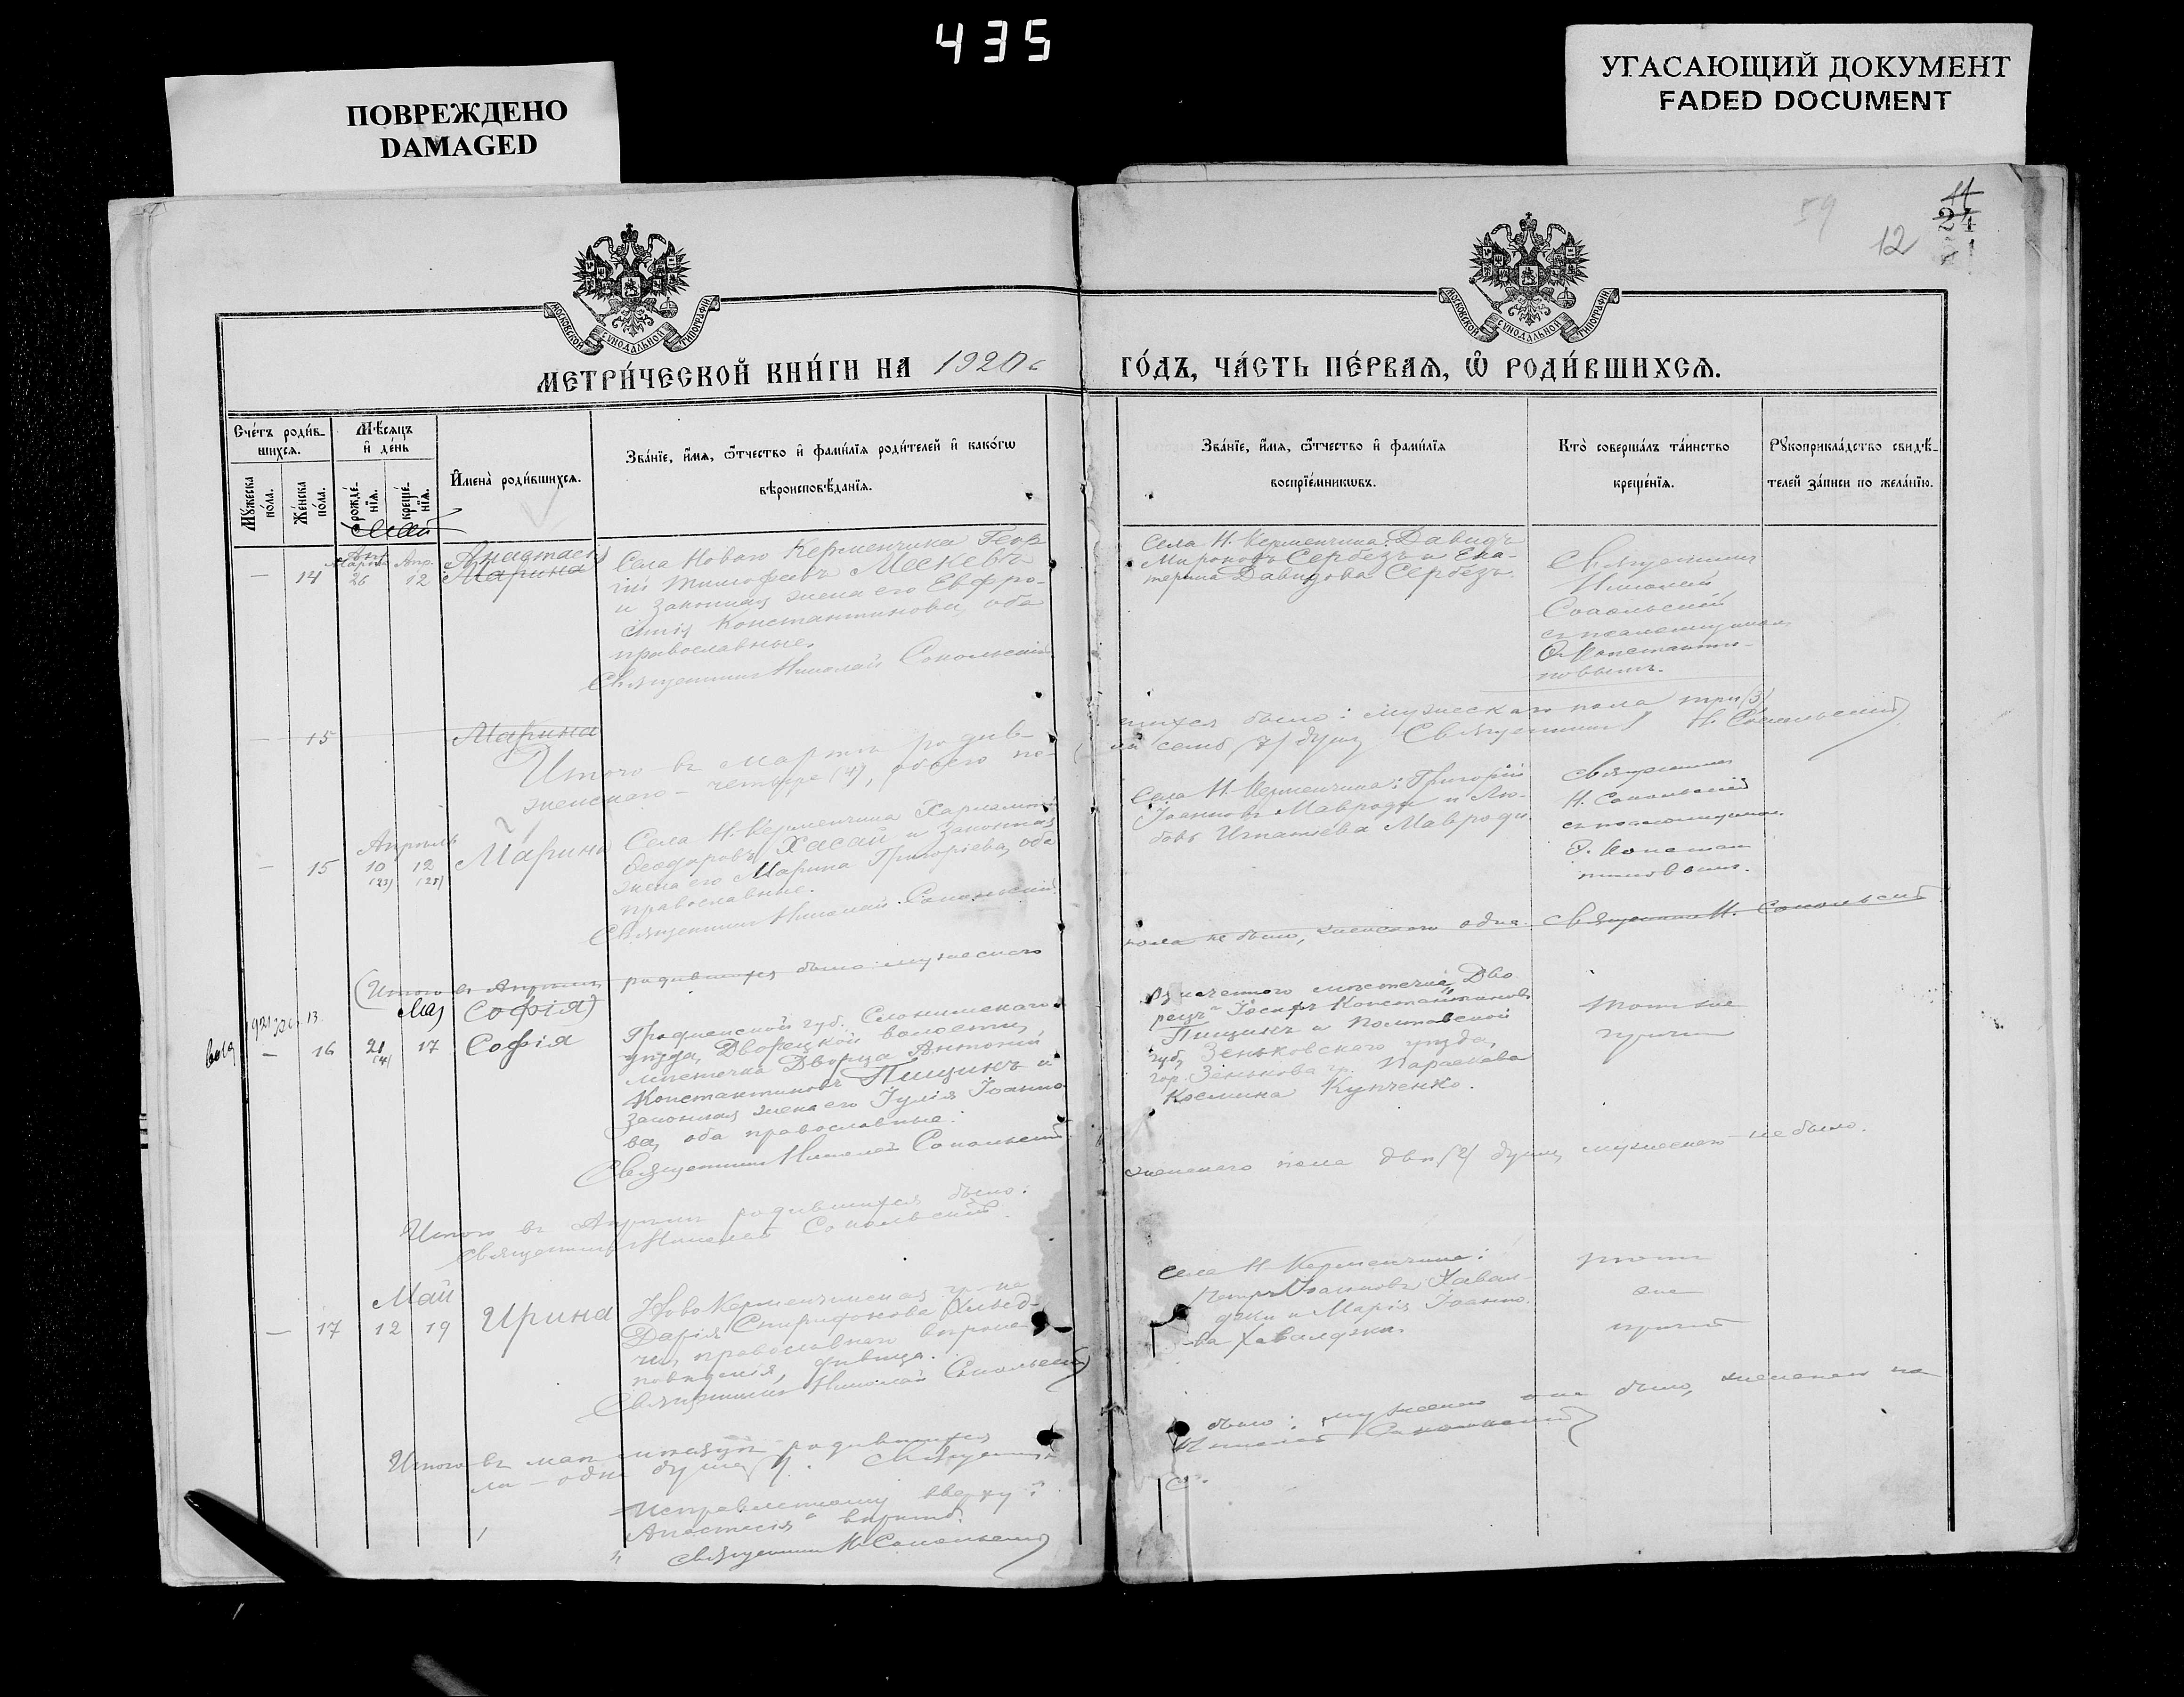 435
ПОВРЕЖДЕНО
DAMAGED
УГАСАЮЩИЙ ДОКУМЕНТ
FADED DOCUMENT
59
12
11
24
МОСКОВСКОЙ СУНОДАЛЬНОЙ ТИПОГРАФІИ
МОСКОВСКОЙ СУНОДАЛЬНОЙ ТИПОГРАФІИ
МЕТРИ́ЧЕСКОЙ КНИ́ГИ НА 1920
ГО́ДЪ, ЧА́СТЬ ПЕ́РВАѦ, Ѽ РОДИ́ВШИХСѦ.
Сче́тъ роди́в-
шихсѧ.
Мꙋ́жеска по́ла.
Же́нска по́ла.
Мѣ́сѧцъ и҆ де́нь
рожде́-нїѧ.
креще́-нїѧ.
И҆мена̀ роди́вшихсѧ.
Зва́нїе, и҆́мѧ, ѻ҆́тчество и҆ фами́лїѧ роди́телей и҆ како́гѡ
вѣроисповѣ́данїѧ.
Зва́нїе, и҆́мѧ, ѻ҆́тчество и҆ фами́лїѧ
воспрїе́мникѡвъ.
Кто̀ соверша́лъ та́инство
креще́нїѧ.
Рꙋкоприкла́дство свидѣ́-
телей за́писи по жела́нїю.
Май
— 14 Марта 26 Апр. 12
Анастасія
Марина
Села Новаго Керменчика Геор
гій Тимофеевъ Мескевъ
и законная жена его Евфро-
синія Константинова, оба
православные.
Священникъ Николай Сокольскій
Села Н. Керменчика: Давидъ
Мироновъ Сербезъ и Ека-
терина Давидова Сербезъ.
Священникъ
Николай
Сокольскій
съ псаломщикомъ
Ѳ. Константи-
новымъ.
— 15
Марина
Итого въ Мартѣ родив-
шихся было: мужескаго пола три (3)
женскаго – четыре (4), обоего по-
ла семь (7) душъ Священникъ Н. Сокольскій
Апрѣль
— 15 10 12
(23) (25)
Марина
Села Н. Керменчика Харлампій
Ѳеодоровъ Хасай и законная
жена его Марина Григоріева, оба
православные.
Священникъ Николай Сокольскій
Села Н. Керменчика: Григорій
Іоанновъ Мавроди и Лю-
бовь Игнатіева Мавроди.
Священникъ
Н. Сокольскій
съ псаломщикомъ
Ѳ. Констан
тиновымъ.
(Итого въ Апрѣлѣ родившихся было: мужескаго
пола не было, женскаго одна. Священникъ Н. Сокольскій
Май Софія)
— 16 21 17
Софія
Гродненской губ. Слонимскаго
уѣзда, Дворецкой волости,
мѣстечка Дворца Антоній
Константиновъ Пищикъ и
законная жена его Іулія Іоанно
ва, оба православные.
Священникъ Николай Сокольскій
означеннаго мѣстечка „Дво
рецъ" Іосифъ Константиновъ
Пищикъ и Полтавской
губ, Зеньковскаго уѣзда,
гор. Зенькова гр. Параскева
Космина Купченко.
тотъ же
причтъ
Итого въ Апрѣлѣ родившихся было:
женскаго пола двѣ (2) души, мужескаго – не было.
Священникъ Николай Сокольскій
Май
— 17 12 19
Ирина
Ново Керменчикская гр-ка
Дарія Спиридонова
православнаго вѣроис
повѣданія, дѣвица.
Священникъ Николай Сокольскій
Села Н Керменчика:
Петръ Іоанновъ Хавал-
джи и Марія Іоанно-
ва Хавалджи
тотъ
же
причтъ
Итого въ маѣ мѣсяцѣ родившихся
было: мужескаго не было, женскаго по
ла – одна душа (1). Священникъ
Николай Сокольскій
Исправленному вверху:
„Анастасія" вѣрить.
Священникъ Н Сокольскій